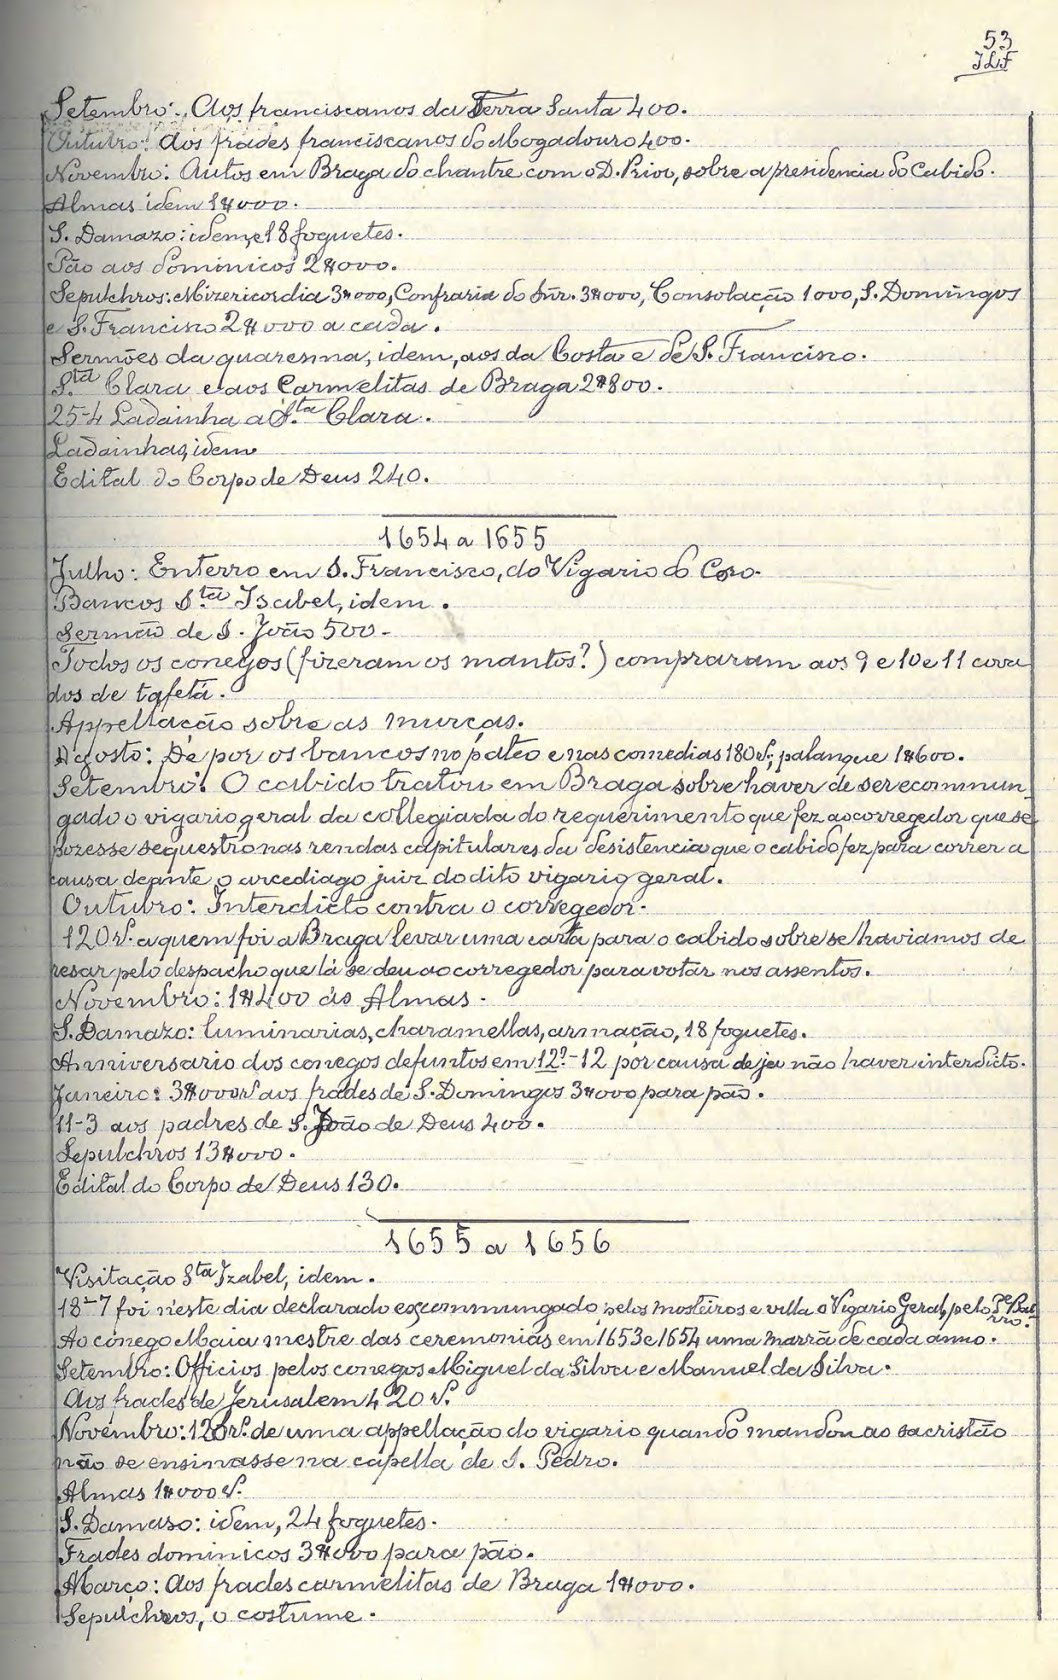 53
JLF
Setembro: Aos franciscanos da Terra Santa 400.
Outubro: Aos frades franciscanos do Mogadouro 400.
Novembro: Autos em Braga do chantre com o D. Prior, sobre a presidencia do Cabido.
Almas idem 1$000.
S. Damazo: idem, e 18 foguetes.
Pão aos dominicos 2$000.
Sepulchros: Mizericordia 3$000, Confraria do Snr. 3$000, Consolação 1000, S. Domingos
e S. Francisco 2$000 a cada.
Sermões da quaresma, idem, aos da Costa e de S. Francisco.
S.ta Clara e aos Carmelitas de Braga 2$800.
25-4 Ladainha a S.ta Clara.
Ladainhas, idem
Edital do Corpo de Deus 240.
1654 a 1655
Julho: Enterro em S. Francisco, do Vigario do Coro.
Bancos S.ta Isabel, idem.
Sermão de S. João 500.
Todos os conegos (fizeram os mantos?) compraram aos 9 e 10 e 11 cova
dos de tafetá.
Appellação sobre as murças.
Agosto: De por os bancos no páteo e nas comedias 180 rs; palanque 1$600.
Setembro: O cabido tratou em Braga sobre haver de ser ecommun
gado o vigario geral da collegiada do requerimento que fez ao corregedor que se
pozesse sequestro nas rendas capitulares da desistencia que o cabido fez para correr a
causa deante o arcediago juiz do dito vigario geral.
Outubro: Interdicto contra o corregedor.
120 rs. a quem foi a Braga levar uma carta para o cabido sobre se haviamos de
resar pelo despacho que lá se deu ao corregedor para votar nos assentos.
Novembro: 1$400 ás Almas.
S. Damazo: luminarias, charamellas, armação, 18 foguetes.
Anniversario dos conegos defuntos em 12-12 por causa de ja não haver interdicto.
Janeiro: 3$000 rs aos frades de S. Domingos 3$000 para pão.
11-3 aos padres de S. João de Deus 400.
Sepulchros 13$000.
Edital do Corpo de Deus 130.
1655 a 1656
Visitação S.ta Izabel, idem.
18-7 foi n'este dia declarado excommungado pelos mosteiros e villa o Vigario Geral, pelo P.e Bar
rro.
Ao conego Maia mestre das ceremonias em 1653 e 1654 uma marrã de cada anno.
Setembro: Officios pelos conegos Miguel da Silva e Manuel da Silva.
Aos frades de Jerusalem 420 rs.
Novembro: 120 rs. de uma appellação do vigario quando mandou ao sacristão
não se ensinasse na capella de S. Pedro.
Almas 1$000 rs.
S. Damaso: idem, 24 foguetes.
Frades dominicos 3$000 para pão.
Março: Aos frades carmelitas de Braga 1$000.
Sepulchros, o costume.